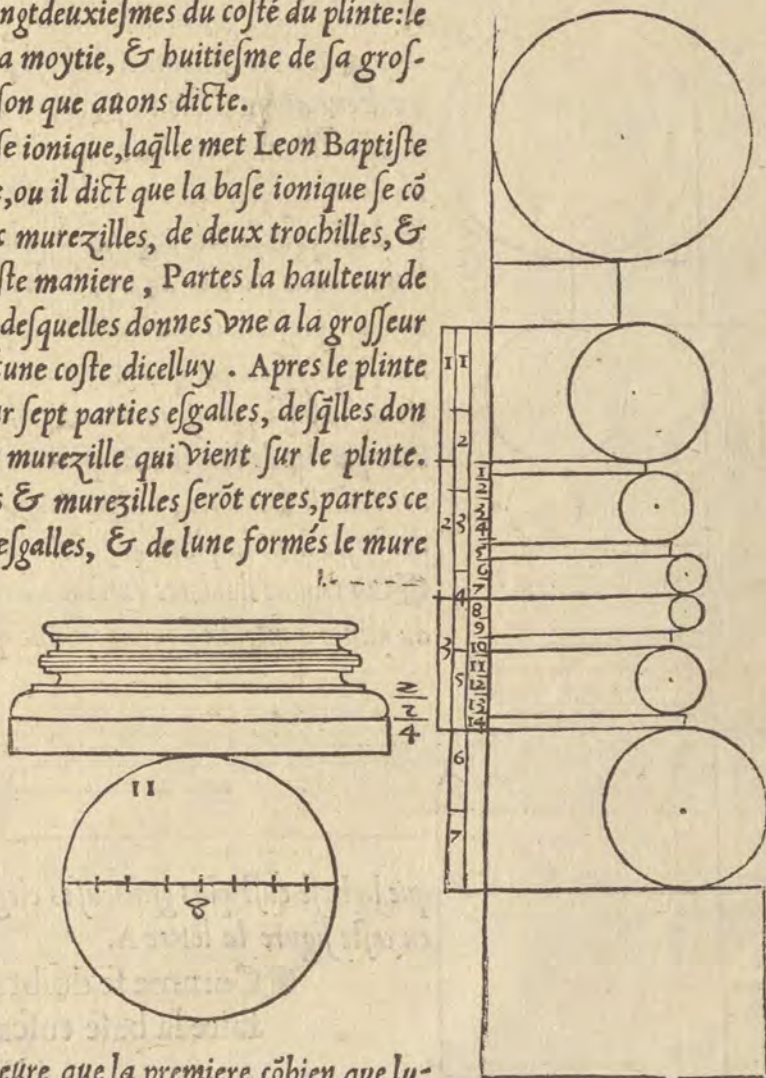 ngtdeuxieſmes du coſté du plinte:le
a moytie, & huitieſme de ſa groſ-
ſon que auons dicte.
ſe ionique,laq̃lle met Leon Baptiſte
,ou il dict que la baſe ionique ſe cõ
murezilles, de deux trochilles,&
ſte maniere , Partes la haulteur de
deſquelles donnes vne a la groſſeur
une coſte dicelluy . Apres le plinte
r ſept parties eſgalles, deſq̃lles don
murezille qui vient ſur le plinte.
s & murezilles ſerõt crees,partes ce
eſgalles, & de lune formés le mure
1 1
2
2 3
4
3
5
6
7
1
2
3
4
5
6
7
8
9
10
11
12
13
14
2
2
4
11
8
eure que la premiere cõbien que lu-